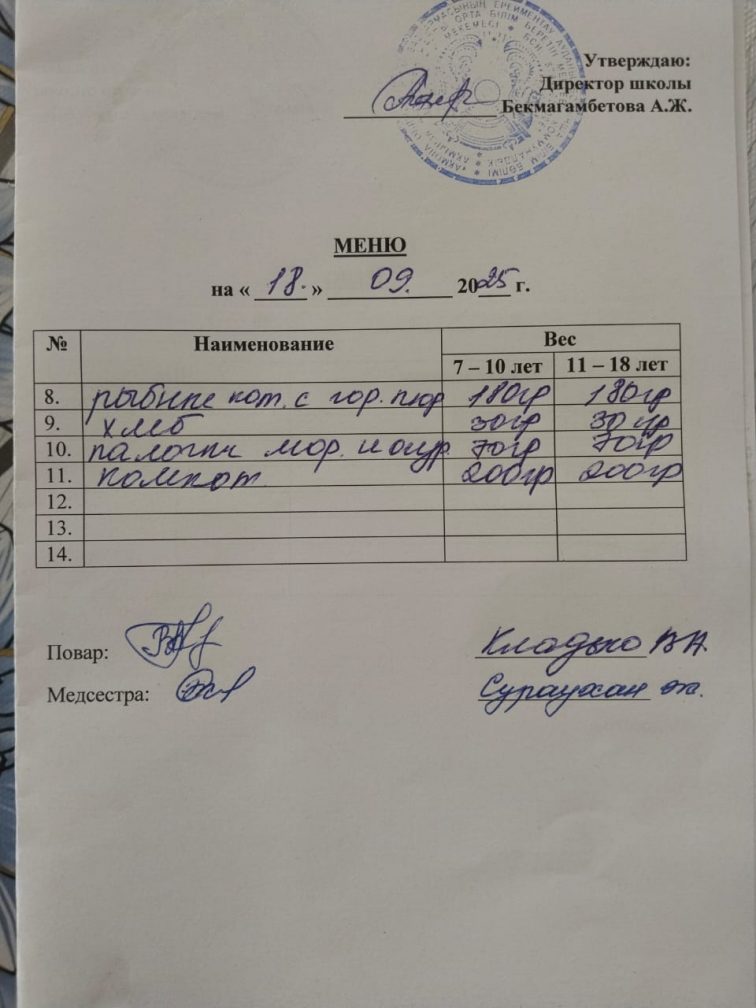 Утверждаю:
Директор школы
Бекмагамбетова А.Ж.
МЕНЮ
на « 18. » 09. 2025 г.
№ Наименование Вес
7 – 10 лет 11 – 18 лет
8. рыбные кот. с гор. пюр 180гр 180гр
9. хлеб 30гр 30гр
10. палочки мор. и огур. 70гр 70гр
11. компот 200гр 200гр
12.
13.
14.
Повар:
Медсестра: